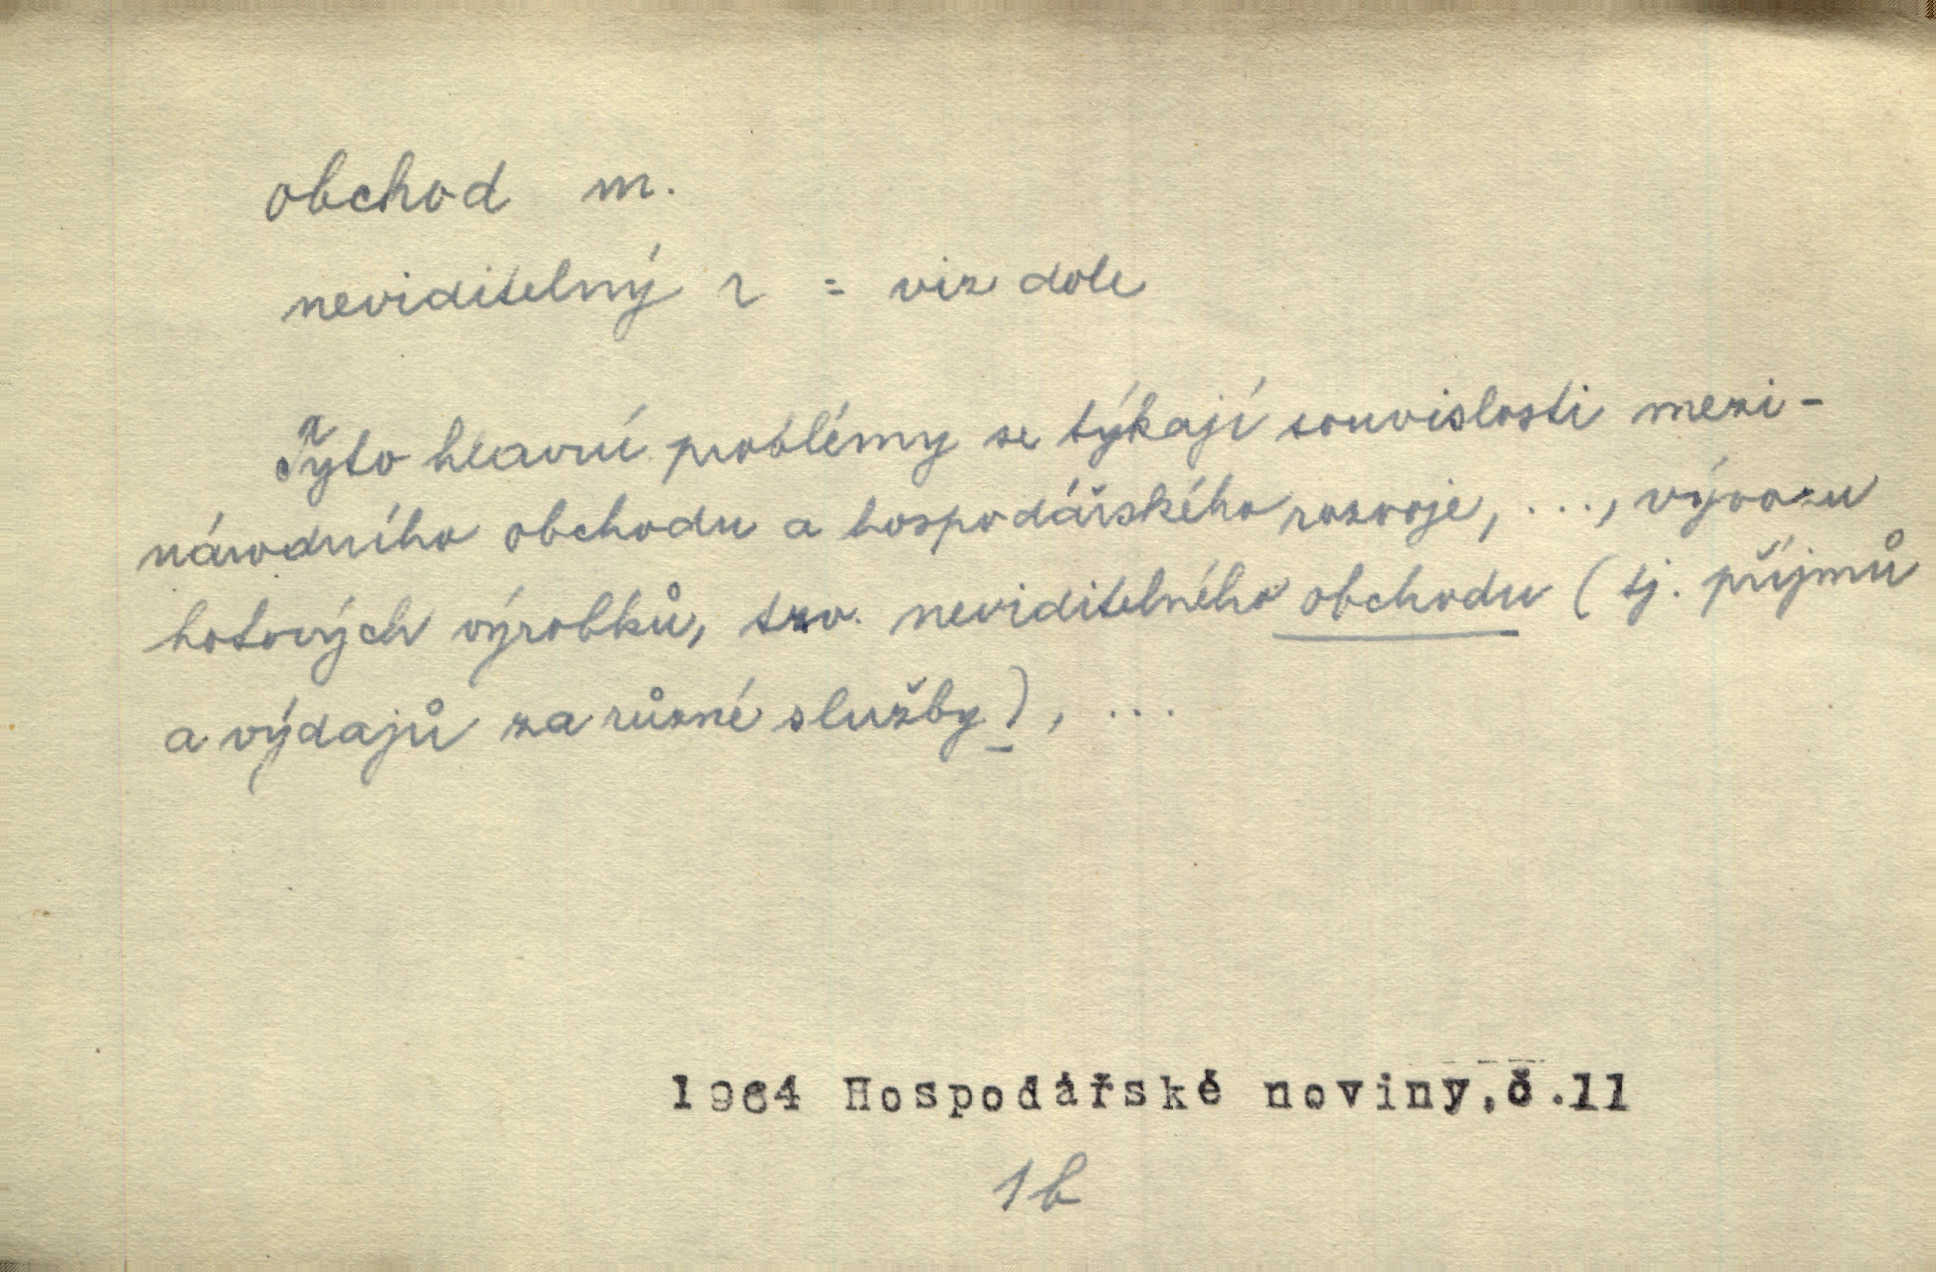 obchod m.
neviditelný ~ = viz dole
Tyto hlavní problémy se týkají souvislosti mezi-
národního obchodu a hospodářského rozvoje, ..., vývozu
hotových výrobků, tzv. neviditelného obchodu (tj. příjmů
a výdajů za různé služby), ...
1964 Hospodářské noviny,č.11
1b